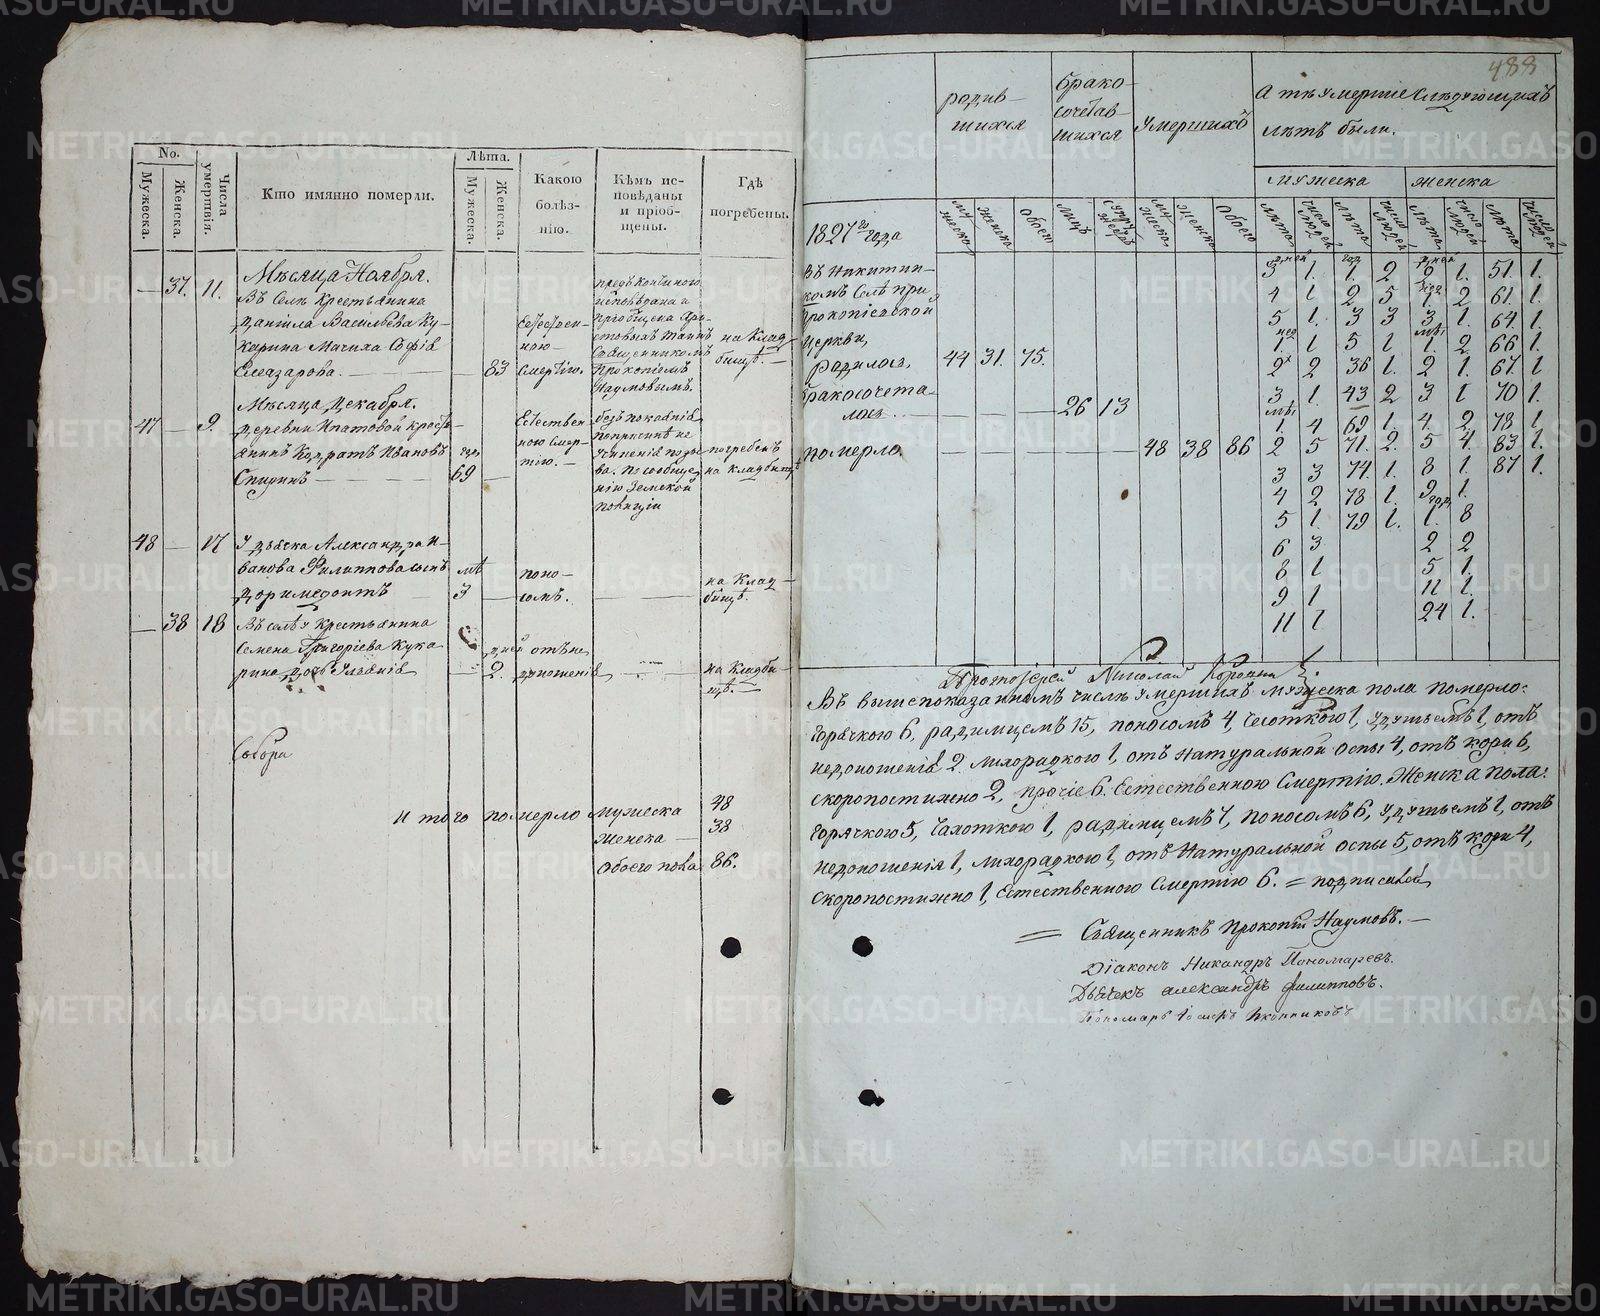 METRIKI.GASO-URAL.RU
No.
Мужеска.
Женска.
Числа умертвія.
Кто имянно померли.
Лѣта.
Мужеска.
Женска.
Какою болѣз-
нію.
Кѣмъ ис-
повѣданы
и пріоб-
щены.
Гдѣ
погребены.
Мѣсяца Ноября.
— 37. 11.
Въ Селѣ Крестьянина
Даніила Васильева Ку-
карина Мачиха Софія
Елеазарова. — 83
Естествен-
ною
смертію.
предъ кончиною
исповѣдана и
пріобщена Свя-
тыхъ таинъ
Священникомъ
Прокопіемъ
Наумовымъ.
на Клад-
бищѣ. —
Мѣсяца Декабря.
47 — 9.
Деревни Ипатовой кресть-
янинъ Кодратъ Ивановъ
Спиринъ — 69 —
Естествен-
ною смер-
тію. —
безъ покаянія
по сообще-
нію Земской
полиціи
погребенъ
на кладбищѣ
48 — 17
У дьячка Александра И-
ванова Филиппова сынъ
Доримедонтъ
мѣ
3 —
поно-
сомъ.
на Клад-
бищѣ.
— 38 18
Въ селѣ у Крестьянина
Семена Григоріева Кука-
рина дочь Ульянія
дней
— 2.
отъ не
доношенія
на Кладби-
щѣ. —
Собора
И того померло мужеска 48
женска — 38
обоего пола 86.
488
родив-
шихся
брако-
сочетав-
шихся
умершихъ
А тѣ умершіе слѣдующихъ
лѣтъ были.
мужеска женска
1827го года
мужеска
женска
обоего
лицъ
мужеска
женска
обоего
лѣта
число людей
лѣта
число людей
лѣта
число людей
лѣта
число людей
Въ Никитин-
комъ Селѣ при
Прокопіевской
церкви,
родилось, 44 31. 75.
бракосочета-
лось. — — — 26 13
померло. — — — 48 38 86
дней год дней
3 1. 1. 2 2 1. 51. 1.
4 1 2 5 1. 2 61. 1.
5 1. 3 3 3 1. 64. 1.
нед мѣ
1. 1 5 1 1 2 66 1.
2 2 36 1. 2 1. 67. 1.
3 1. 43 2 3 1 70 1.
мѣ
1. 4 69 1. 4. 2 78 1.
2 5 71. 2. 5 4. 83 1.
3 3 74. 1. 8 1. 87 1.
4 2 78 1. 9 1.
год
5 1. 79 1. 1. 8
6 3 2 2
8 1 5 1.
9 1 11 1.
11 1 24 1.
Протоіерей Николай
Въ вышепоказанномъ числѣ умершихъ мужеска пола померло:
горячкою 6, родимцемъ 15, поносомъ 4, чесоткою 1, удушьемъ 1, отъ
недоношенія 2. лихорадкою 1, отъ натуральной оспы 4, отъ кори 6,
скоропостижно 2, прочіе 6. Естественною Смертію. Женска пола:
горячкою 5, чахоткою 1, родимцемъ 7, поносомъ 6, удушьемъ 1, отъ
недоношенія 1, лихорадкою 1, отъ натуральной оспы 5, отъ кори 4,
скоропостижно 1, естественною Смертію 6. =
= Священникъ Прокопій Наумовъ. —
Діаконъ Никандръ Пономаревъ.
Дьячекъ Александръ Филипповъ.
Пономарь Иконниковъ